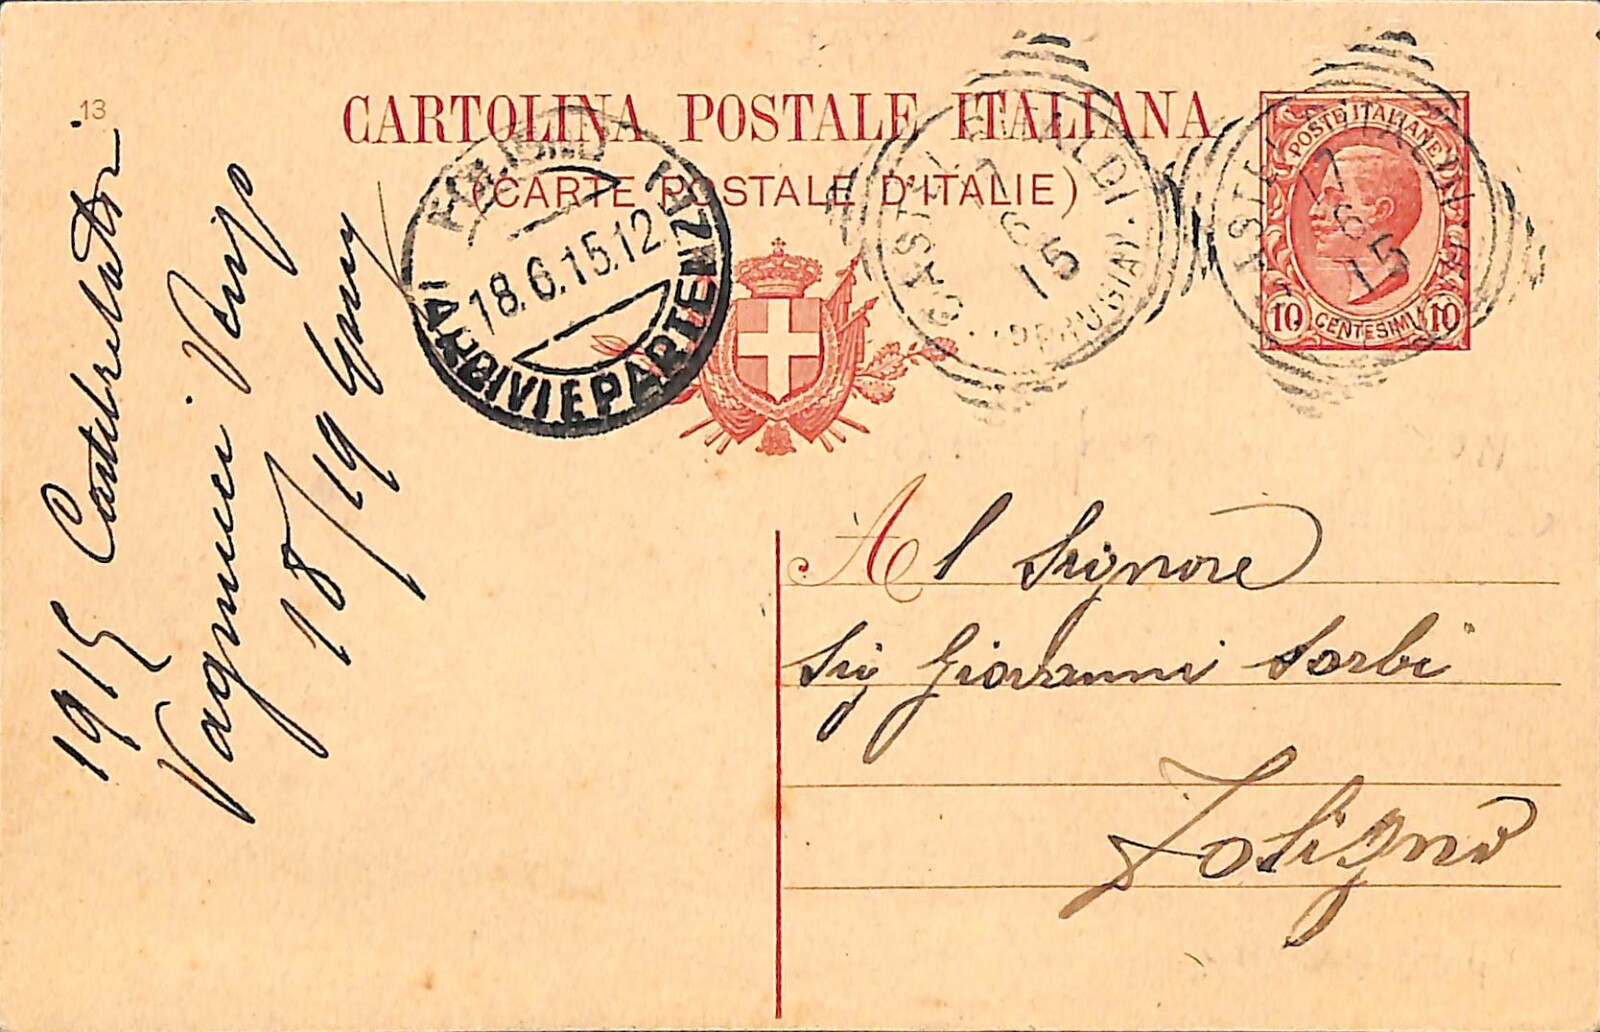 13
CARTOLINA POSTALE ITALIANA
(CARTE POSTALE D'ITALIE)
POSTE ITALIANE
10 CENTESIMI 10
17
6
15
(PERUGIA)
17
6
15
18.6.15.12
ARRIVI E PARTENZE
Al Signore
Sig Giovanni Sorbi
Foligno
1915
Vagnucci
18/19